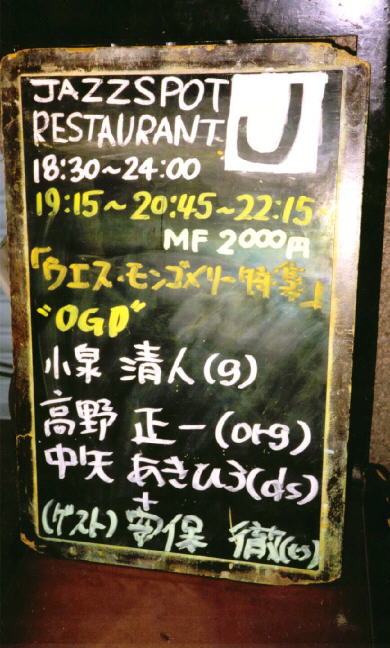 JAZZSPOT
RESTAURANT J
18:30~24:00
19:15~20:45~22:15~
MF 2000円
「ウエス・モンゴメリー特集」
"OGD"
小泉 清人(g)
高野 正一(org)
中矢 あきひろ(ds)
+
(ゲスト) 安保 徹